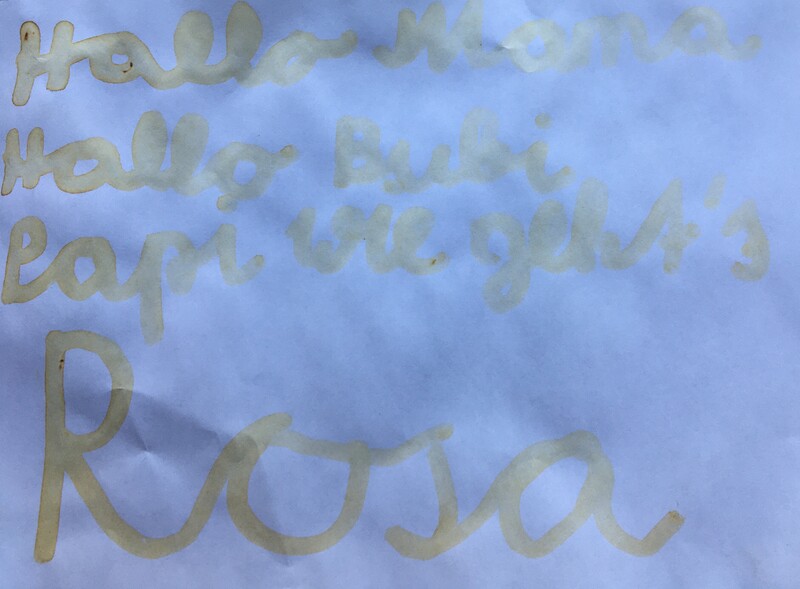 Hallo Mama
Hallo Bubi
Papi wie geht's
Rosa